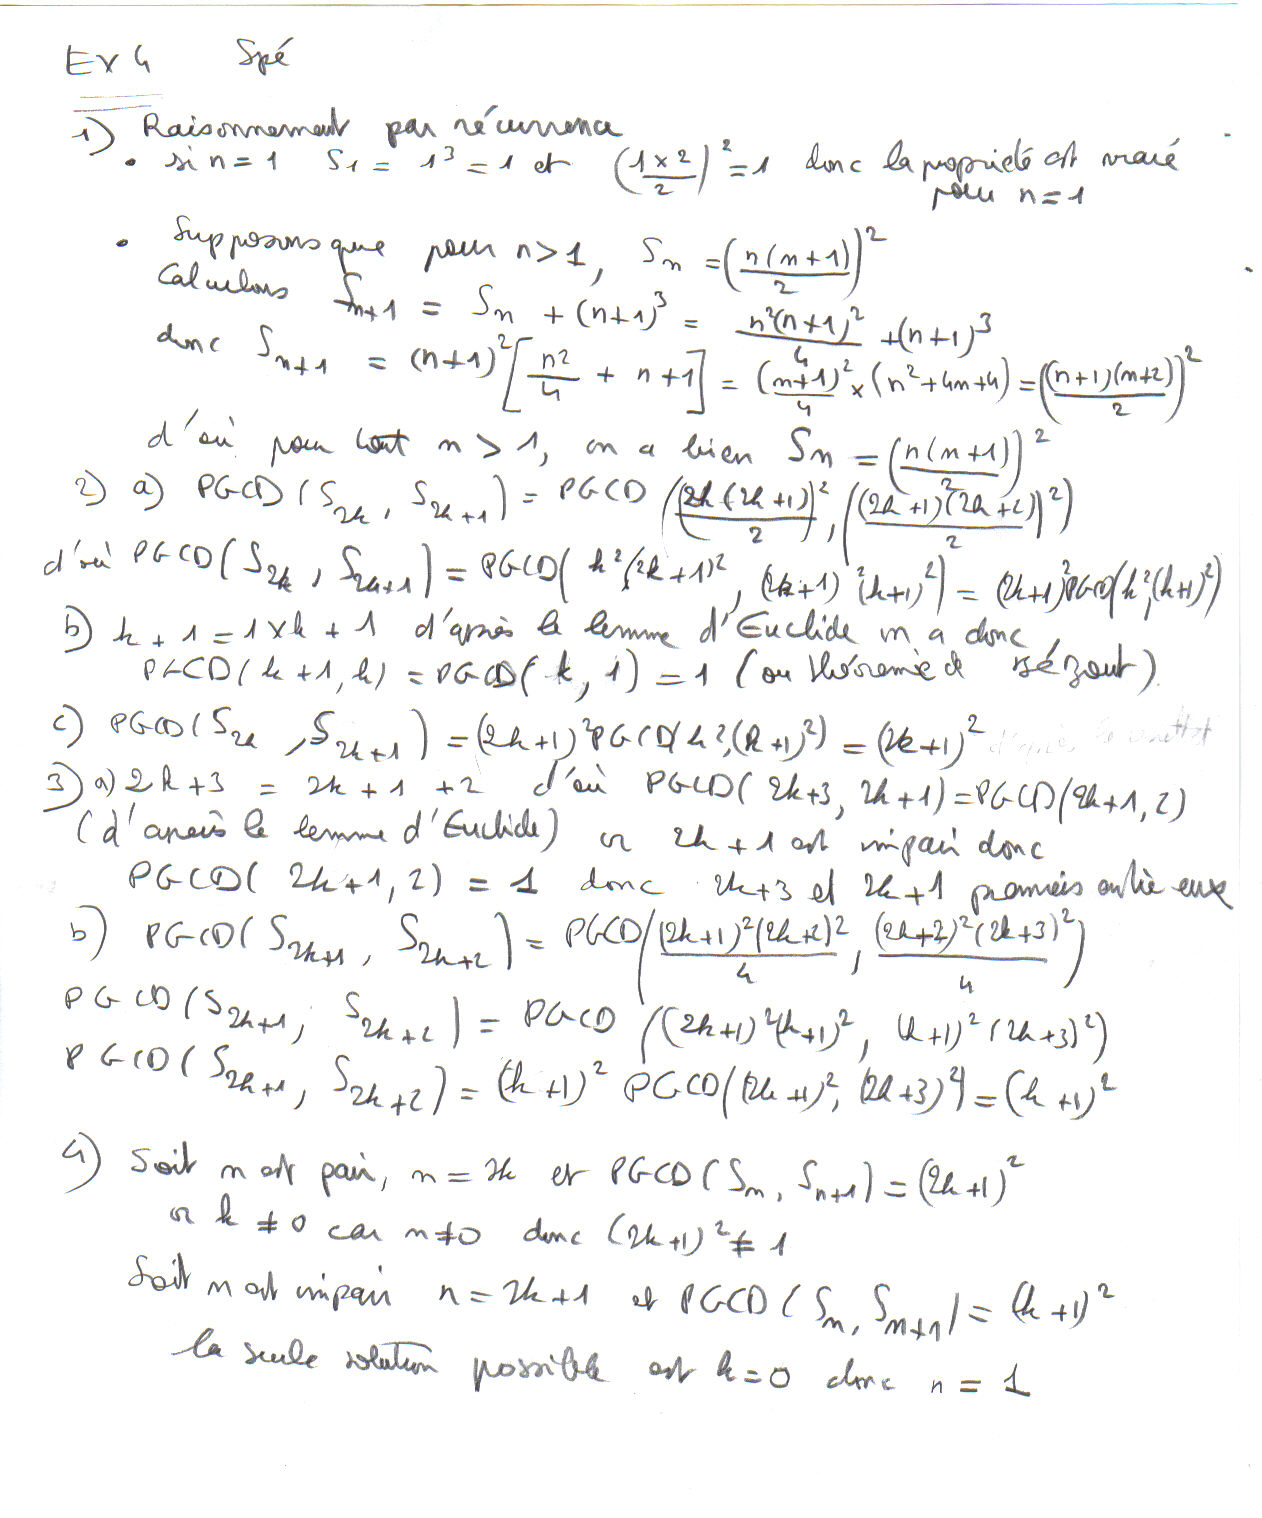 Ex 4 Spé
1) Raisonnement par récurrence
• si n = 1 S₁ = 1³ = 1 et (1×2/2)² = 1 donc la propriété est vraie
pour n = 1
• Supposons que pour n > 1, Sn = (n(n+1)/2)²
Calculons Sn+1 = Sn + (n+1)³ = n²(n+1)²/4 + (n+1)³
donc Sn+1 = (n+1)² [n²/4 + n+1] = (n+1)²/4 × (n²+4n+4) = ((n+1)(n+2)/2)²
d'où pour tout n > 1, on a bien Sn = (n(n+1)/2)²
2) a) PGCD(S2k, S2k+1) = PGCD((2k(2k+1)/2)², ((2k+1)(2k+2)/2)²)
d'où PGCD(S2k, S2k+1) = PGCD(k²(2k+1)², (2k+1)²(k+1)²) = (2k+1)² PGCD(k²,(k+1)²)
b) k+1 = 1×k + 1 d'après le lemme d'Euclide on a donc
PGCD(k+1, k) = PGCD(k, 1) = 1 (ou théorème de Bézout).
c) PGCD(S2k, S2k+1) = (2k+1)² PGCD(k²,(k+1)²) = (2k+1)²
3) a) 2k+3 = 2k+1+2 d'où PGCD(2k+3, 2k+1) = PGCD(2k+1, 2)
(d'après le lemme d'Euclide) or 2k+1 est impair donc
PGCD(2k+1, 2) = 1 donc 2k+3 et 2k+1 premiers entre eux
b) PGCD(S2k+1, S2k+2) = PGCD((2k+1)²(2k+2)²/4, (2k+2)²(2k+3)²/4)
PGCD(S2k+1, S2k+2) = PGCD((2k+1)²(k+1)², (k+1)²(2k+3)²)
PGCD(S2k+1, S2k+2) = (k+1)² PGCD((2k+1)², (2k+3)²) = (k+1)²
4) Soit n est pair, n = 2k et PGCD(Sn, Sn+1) = (2k+1)²
or k ≠ 0 car n ≠ 0 donc (2k+1)² ≠ 1
Soit n est impair n = 2k+1 et PGCD(Sn, Sn+1) = (k+1)²
la seule solution possible est k = 0 donc n = 1